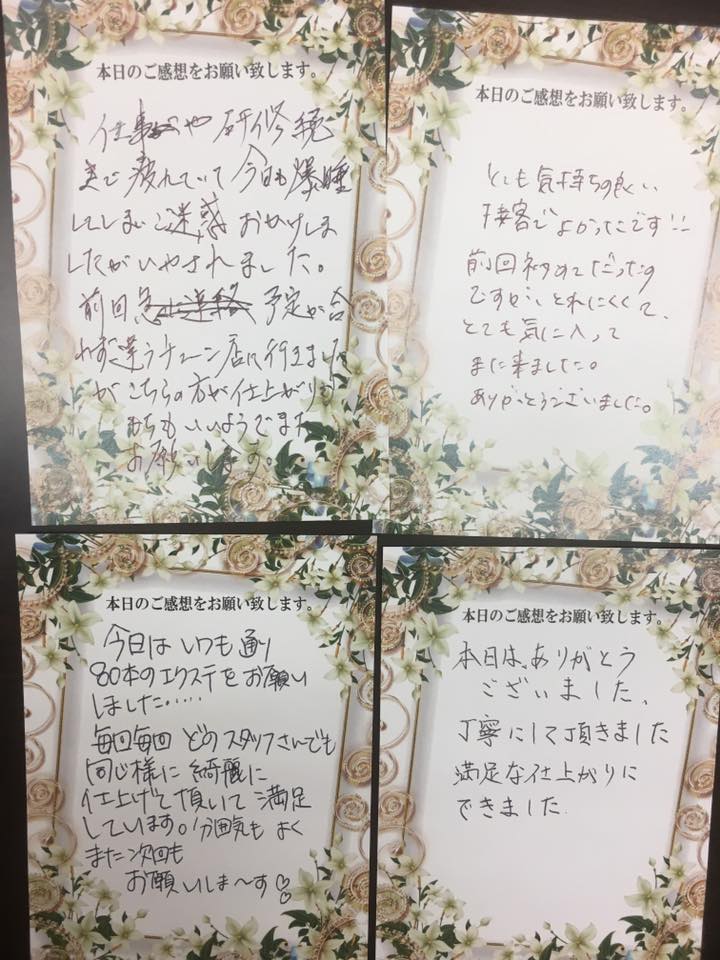 本日のご感想をお願い致します。
仕事や研修続
きで疲れていて今日も爆睡
してしまいご迷惑おかけしま
したがいやされました。
前回急に連絡予定が合
わず違うチェーン店に行きました
がこちらの方が仕上がりも
もちもいいようでまた
お願いします。
本日のご感想をお願い致します。
とても気持ちの良い
接客でよかったです!!
前回初めてだったの
ですが、とれにくくて、
とても気に入って
また来ました。
ありがとうございました。
本日のご感想をお願い致します。
今日はいつも通り
80本のエクステをお願い
しました.....
毎回毎回どのスタッフさんでも
同じ様に綺麗に
仕上げて頂いて満足
しています。分囲気もよく
また次回も
お願いしま〜す♡
本日のご感想をお願い致します。
本日は、ありがとう
ございました、
丁寧にして頂きました
満足な仕上がりに
できました